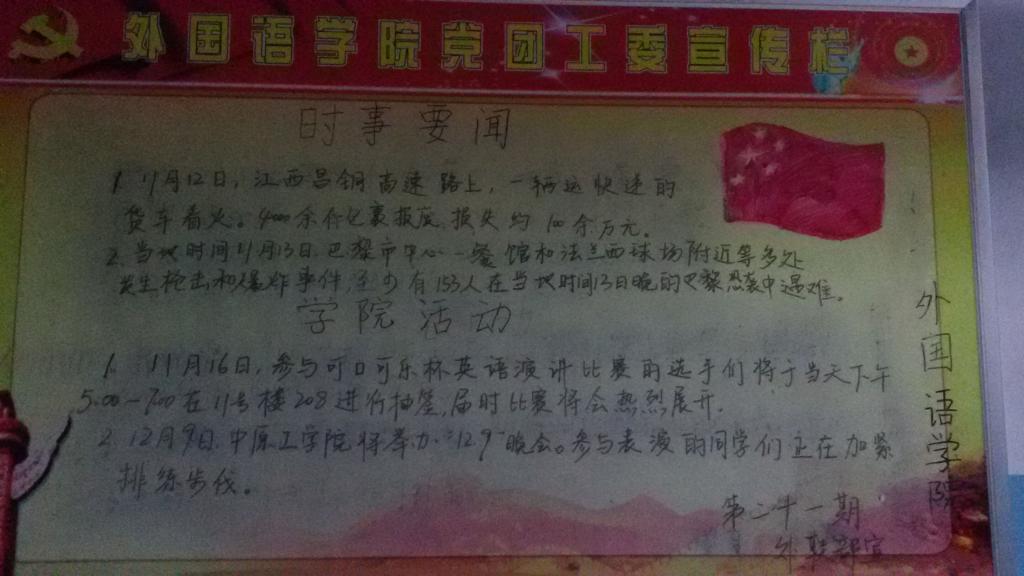 外国语学院党团工委宣传栏
时事要闻
1. 11月12日，江西昌铜高速路上，一辆运快递的
货车着火。4000余件包裹报废，损失约100余万元。
2. 当地时间11月13日巴黎市中心一餐馆和法兰西球场附近等多处
发生枪击和爆炸事件，至少有153人在当地时间13日晚的巴黎恐袭中遇难。
学院活动
1. 11月16日，参与可口可乐杯英语演讲比赛的选手们将于当天下午
5:00-7:00在11号楼208进行抽签，届时比赛将会热烈展开。
2. 12月9日，中原工学院将举办"12.9"晚会。参与表演的同学们正在加紧
排练步伐。
第二十一期
外联部宣
外国语学院